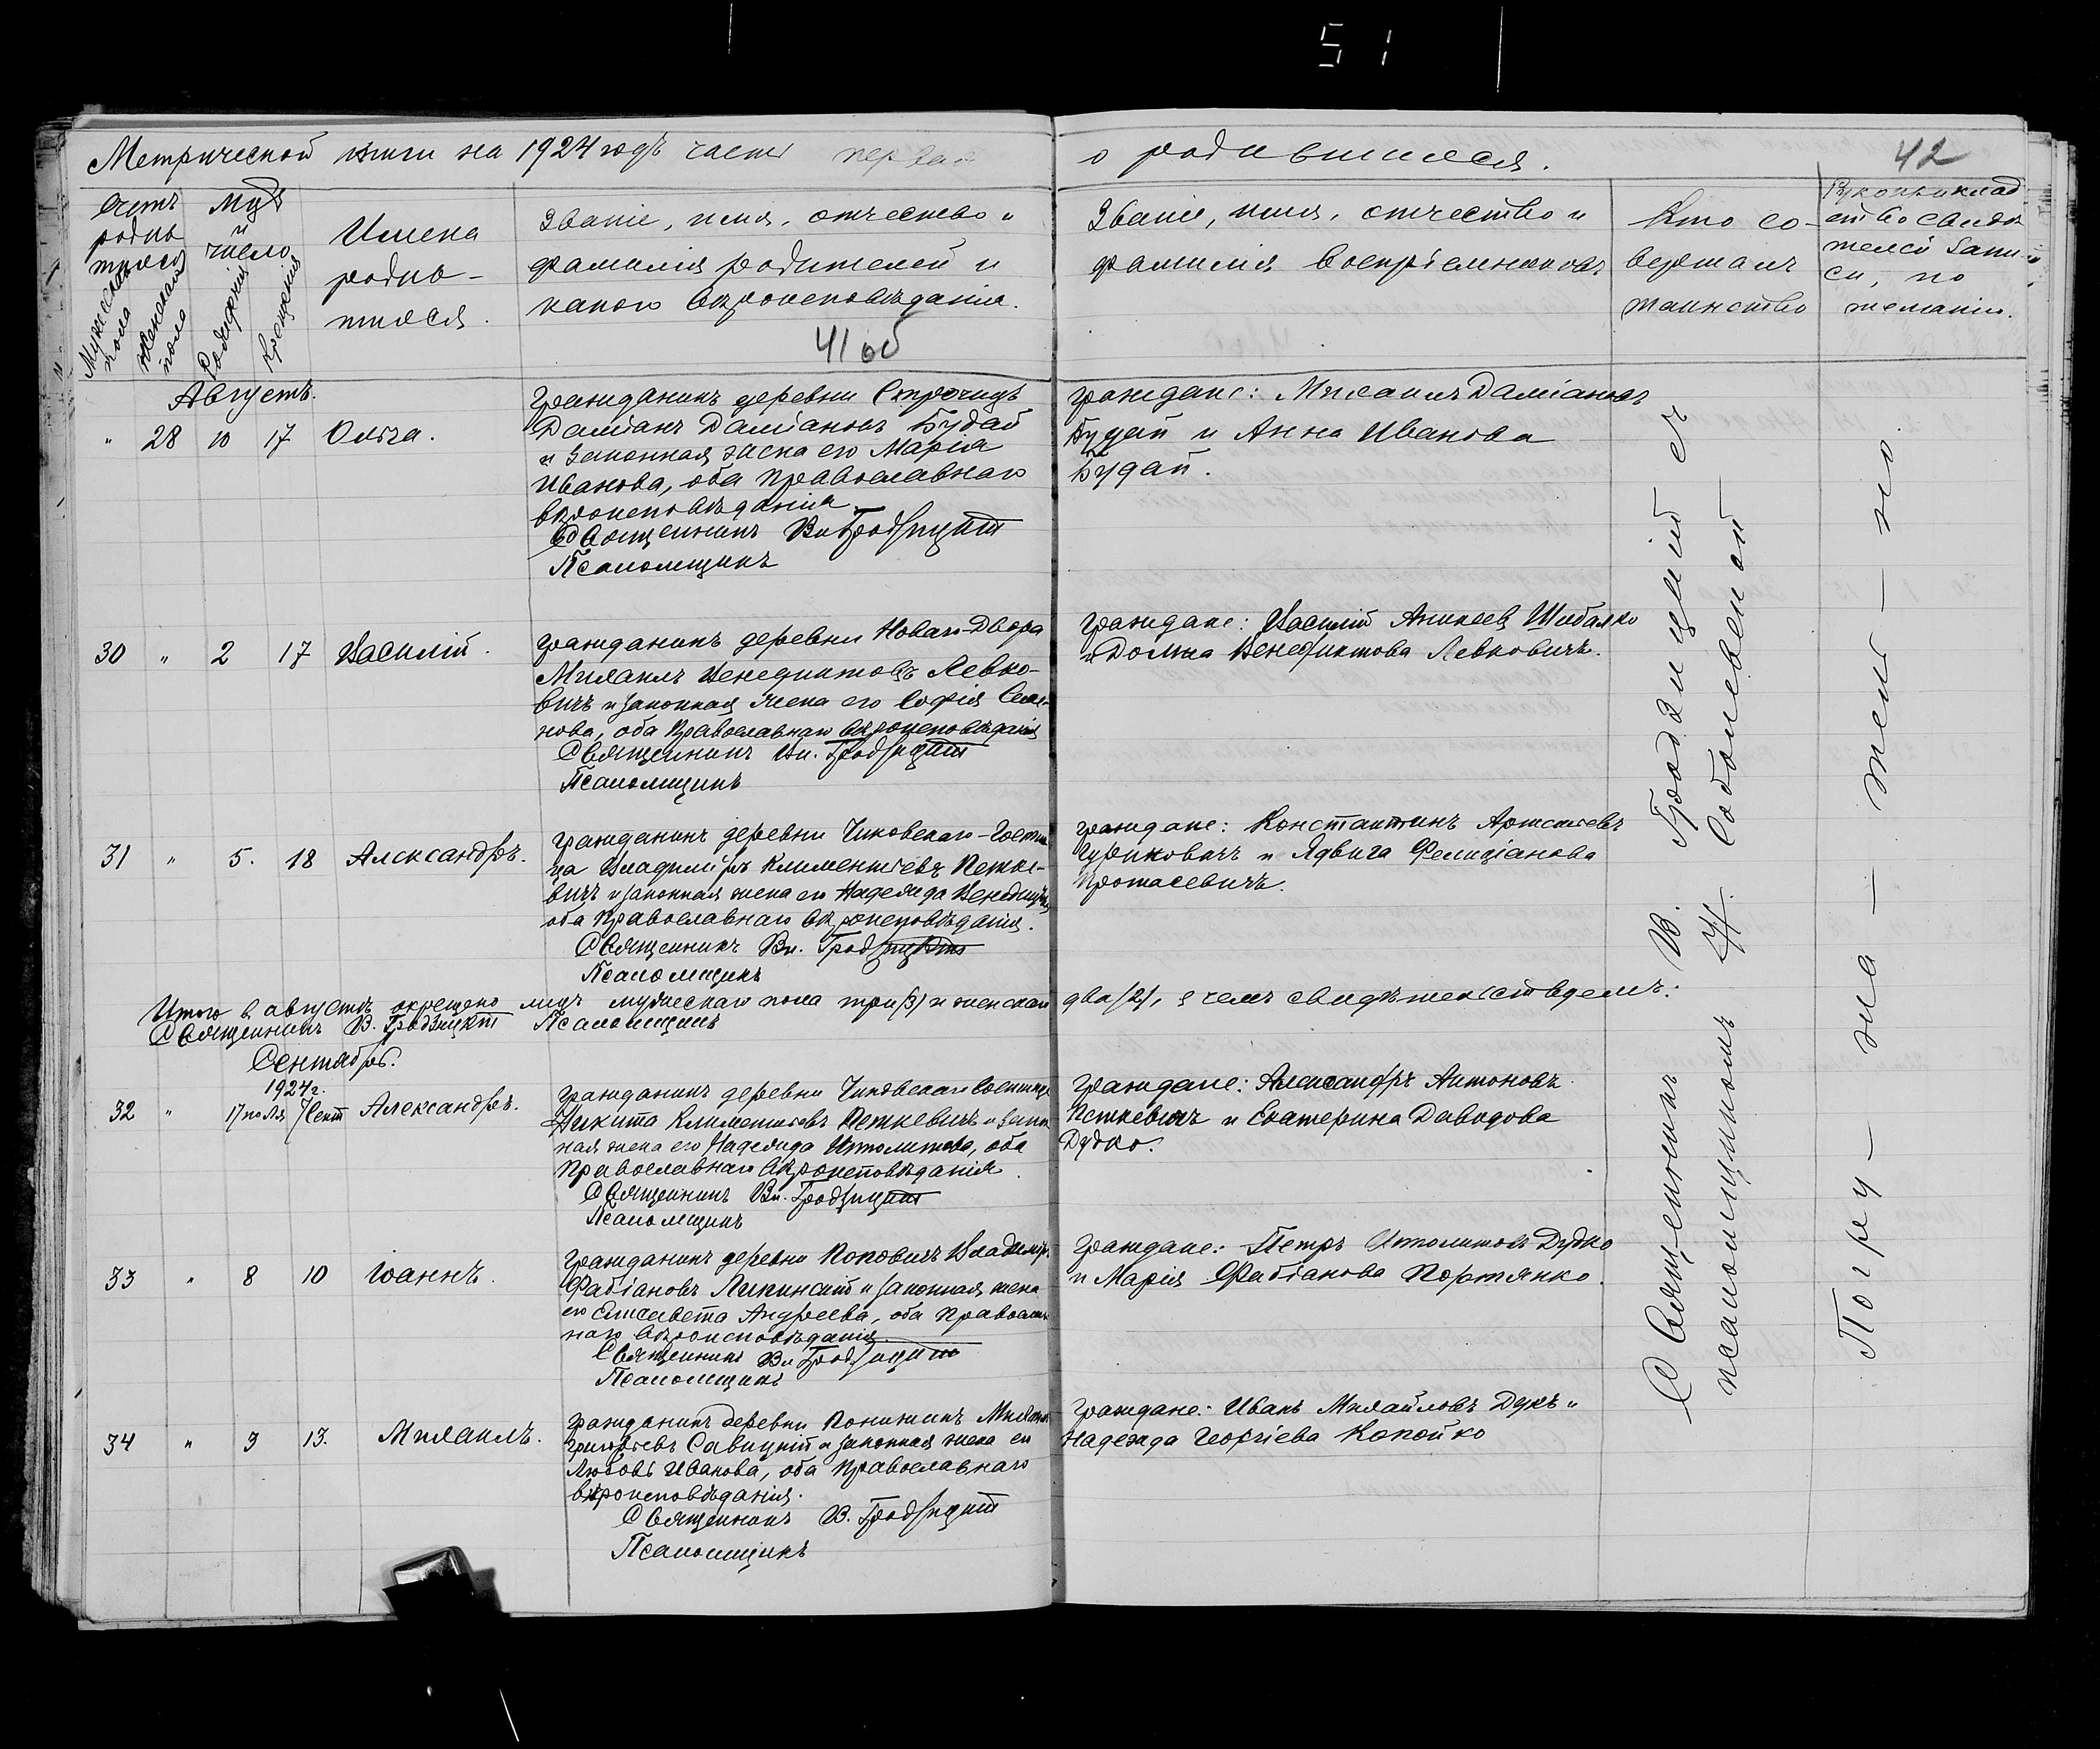 51
Метрической книги на 1924 годъ часть первая
о родившихся.
42
Счетъ
родив
шихся
Мужескаго
пола
Женскаго
пола
и
число
Рожденія
Крещенія
Имена
родив-
шихся.
Званіе, имя, отчество и
фамилія родителей и
какого вѣроисповѣданія.
41 об
Званіе, имя, отчество и
фамилія воспріемниковъ
Кто со-
вершалъ
таинство
Рукоприклад
ство свидѣ
телей запи
си, по
желанію.
Августъ.
" 28 10 17 Ольга.
Гражданинъ деревни
Даміанъ Даміановъ Будай
и законная жена его Марія
Иванова, оба православнаго
вѣроисповѣданія
Священникъ Вл. Гродзицкій
Псаломщикъ
Граждане: Михаилъ Даміановъ
Будай и Анна Иванова
Будай.
30 " 2 17 Василій.
Гражданинъ деревни Новаго-Двора
Михаилъ Венедиктовъ Левко-
вичъ и законная жена его Софія Семе-
нова, оба Православнаго вѣроисповѣданія
Священникъ Вл. Гродзицкій
Псаломщикъ
Граждане: Василій Шибалко
и Домна Венедиктова Левковичъ.
31 " 5. 18 Александръ.
Гражданинъ деревни Чиковскаго-
ца Владиміръ Климентіевъ Петке-
вичъ и законная жена его Надежда
оба Православнаго вѣроисповѣданія.
Священникъ Вл. Гродзицкій
Псаломщикъ
Граждане: Константинъ
и Ядвига Фелиціанова
Протасевичъ.
Итого в августѣ окрещено лицъ мужескаго пола три (3) и женскаго два (2), в чемъ свидѣтельствуемъ:
Священникъ В. Гродзицкій Псаломщикъ
Сентябрь.
1924 г.
32 " 17 іюля 1 Сент Александръ.
Гражданинъ деревни Чиковскаго
Никита Климентіевъ Петкевичъ и закон
ная жена его Надежда Ипполитова, оба
Православнаго вѣроисповѣданія.
Священникъ Вл. Гродзицкій
Псаломщикъ
Граждане: Александръ Антоновъ
Петкевичъ и Екатерина Давидова
Дудко.
33 " 8 10 Іоаннъ.
Гражданинъ деревни Поповичъ Владиміръ
Фабіановъ и законная жена
его Елисавета Андреева, оба православ
наго вѣроисповѣданія.
Священникъ Вл. Гродзицкій
Псаломщикъ
Граждане: Петръ Ипполитовъ Дудко
и Марія Фабіанова Портянко.
34 " 9 13. Михаилъ.
Гражданинъ деревни
Григорьевъ Савицкій и законная жена его
Любовь Иванова, оба православнаго
вѣроисповѣданія.
Священникъ В. Гродзицкій
Псаломщикъ
Граждане: Иванъ Михайловъ Дукъ и
Надежда Георгіева Копойко
Священникъ В. Гродзицкій съ
псаломщикомъ Н. Соболевской